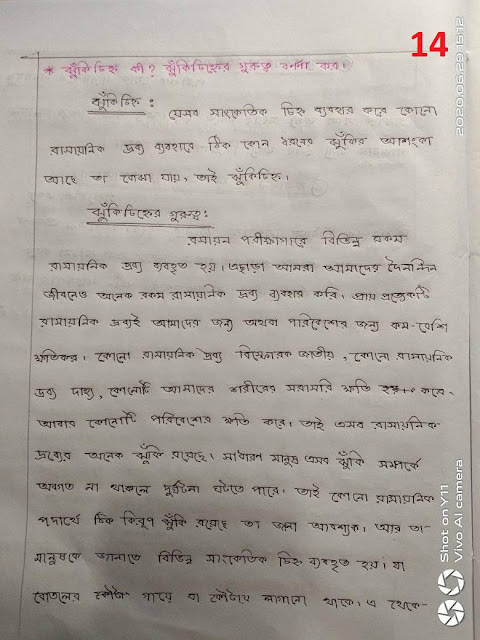 14
* ঝুঁকিচিহ্ন কী? ঝুঁকিচিহ্নের গুরুত্ব বর্ণনা কর।
ঝুঁকিচিহ্ন : যেসব সাংকেতিক চিহ্ন ব্যবহার করে কোনো
রাসায়নিক দ্রব্য ব্যবহারে ঠিক কোন ধরনের ঝুঁকির আশংকা
আছে তা বোঝা যায়, তাই ঝুঁকিচিহ্ন।
ঝুঁকিচিহ্নের গুরুত্ব :
রসায়ন পরীক্ষাগারে বিভিন্ন রকম
রাসায়নিক দ্রব্য ব্যবহৃত হয়। এছাড়া আমরা আমাদের দৈনন্দিন
জীবনেও অনেক রকম রাসায়নিক দ্রব্য ব্যবহার করি। প্রায় প্রত্যেকটি
রাসায়নিক দ্রব্যই আমাদের জন্য অথবা পরিবেশের জন্য কম-বেশি
ক্ষতিকর। কোনো রাসায়নিক দ্রব্য বিস্ফোরক জাতীয়, কোনো রাসায়নিক
দ্রব্য দাহ্য, কোনোটি আমাদের শরীরের সরাসরি ক্ষতি করে,
আবার কোনোটি পরিবেশের ক্ষতি করে। তাই এসব রাসায়নিক
দ্রব্যের অনেক ঝুঁকি রয়েছে। সাধারণ মানুষ এসব ঝুঁকি সম্পর্কে
অবগত না থাকলে দুর্ঘটনা ঘটতে পারে। তাই কোনো রাসায়নিক
পদার্থে ঠিক কিরূপ ঝুঁকি রয়েছে তা জানা আবশ্যক। আর তা-
মানুষকে জানাতে বিভিন্ন সাংকেতিক চিহ্ন ব্যবহৃত হয়। যা
বোতলের গায়ে বা কৌটায় লাগানো থাকে। এ থেকে-
2020.06.29 15:12
Shot on Y11
Vivo AI camera